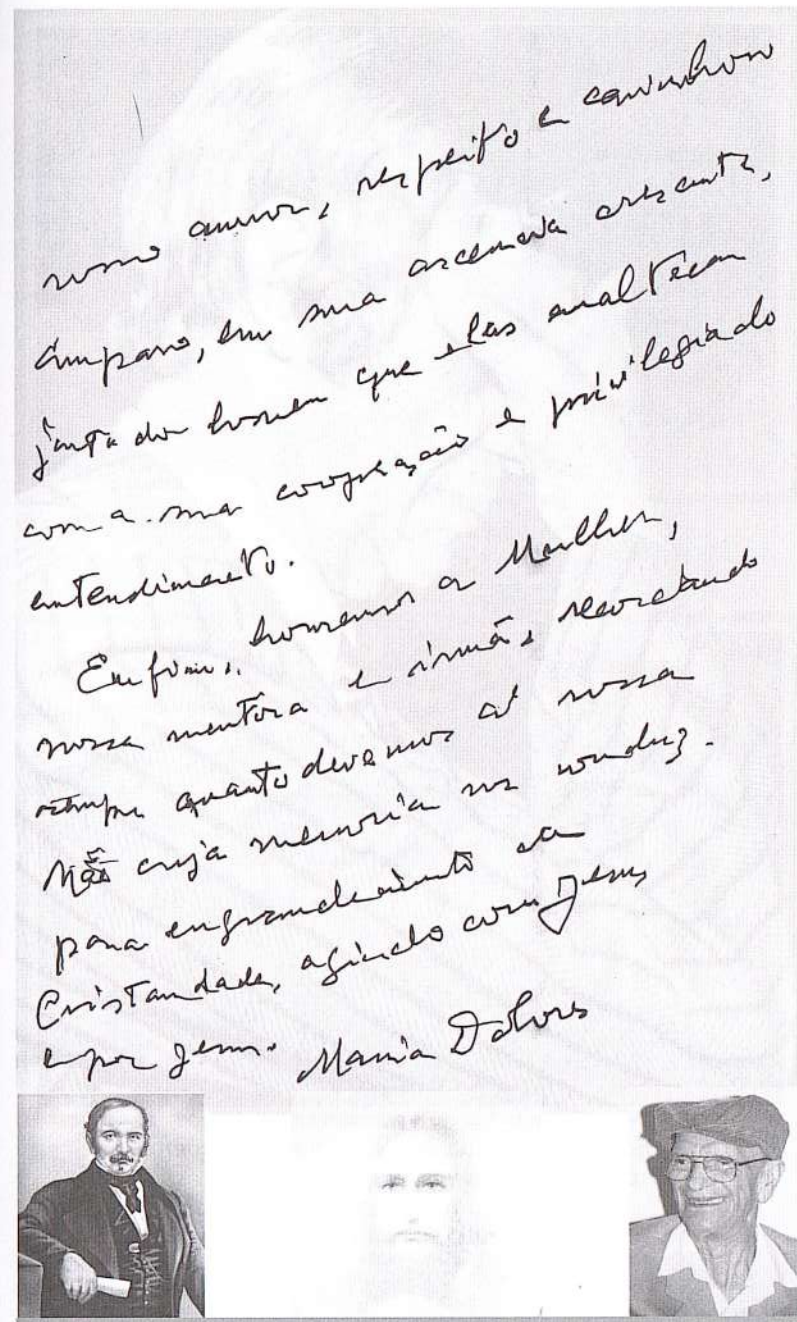 nosso amor, respeito e carinhoso
amparo, em sua ascensão crescente,
junto do homem que elas enaltecem
com a sua cooperação e privilegiado
entendimento.
Enfim, honremos a Mulher,
nossa mentora e irmã, recordando
sempre quanto devemos à nossa
Mãe cuja memória nos conduz
para engrandecimento da
Cristandade, agindo com Jesus
e por Jesus. Maria Dolores